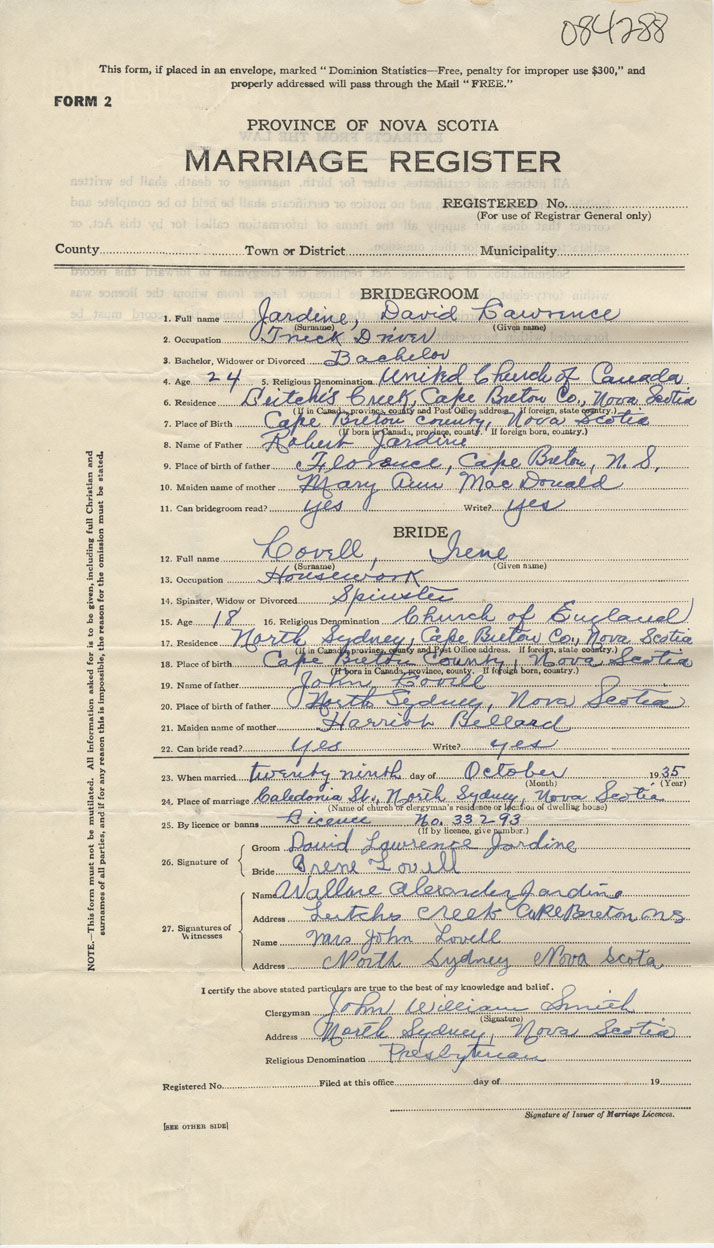 084288
This form, if placed in an envelope, marked "Dominion Statistics—Free, penalty for improper use $300," and
properly addressed will pass through the Mail "FREE."
FORM 2
PROVINCE OF NOVA SCOTIA
MARRIAGE REGISTER
REGISTERED No.
(For use of Registrar General only)
County Town or District Municipality
BRIDEGROOM
1. Full name Jardine, David Lawrence
(Surname) (Given name)
2. Occupation Truck Driver
3. Bachelor, Widower or Divorced Bachelor
4. Age 24 5. Religious Denomination United Church of Canada
6. Residence Leitche's Creek, Cape Breton Co., Nova Scotia
(If in Canada, province, county and Post Office address. If foreign, state country.)
7. Place of Birth Cape Breton County, Nova Scotia
(If born in Canada, province, county. If foreign born, country.)
8. Name of Father Robert Jardine
9. Place of birth of father Florence, Cape Breton, N.S.
10. Maiden name of mother Mary Ann MacDonald
11. Can bridegroom read? yes Write? yes
BRIDE
12. Full name Lovell, Irene
(Surname) (Given name)
13. Occupation Housework
14. Spinster, Widow or Divorced Spinster
15. Age 18 16. Religious Denomination Church of England
17. Residence North Sydney, Cape Breton Co., Nova Scotia
(If in Canada, province, county and Post Office address. If foreign, state country.)
18. Place of birth Cape Breton County, Nova Scotia
(If born in Canada, province, county. If foreign born, country.)
19. Name of father John Lovell
20. Place of birth of father North Sydney, Nova Scotia
21. Maiden name of mother Harriot Bellard
22. Can bride read? yes Write? yes
23. When married twenty ninth day of October 1935
(Month) (Year)
24. Place of marriage Caledonia St., North Sydney, Nova Scotia
(Name of church or clergyman's residence or location of dwelling house)
25. By licence or banns Licence No. 33293
(If by licence, give number.)
26. Signature of Groom David Lawrence Jardine
Bride Irene Lovell
27. Signatures of Witnesses
Name Wallace Alexander Jardine
Address Leitches Creek Cape Breton NS
Name Mrs John Lovell
Address North Sydney Nova Scota
I certify the above stated particulars are true to the best of my knowledge and belief.
Clergyman John William Smith
(Signature)
Address North Sydney, Nova Scotia
Religious Denomination Presbyterian
Registered No. Filed at this office day of 19
Signature of Issuer of Marriage Licences.
[SEE OTHER SIDE]
NOTE.—This form must not be mutilated. All information asked for is to be given, including full Christian and
surnames of all parties, and if for any reason this is impossible, the reason for the omission must be stated.